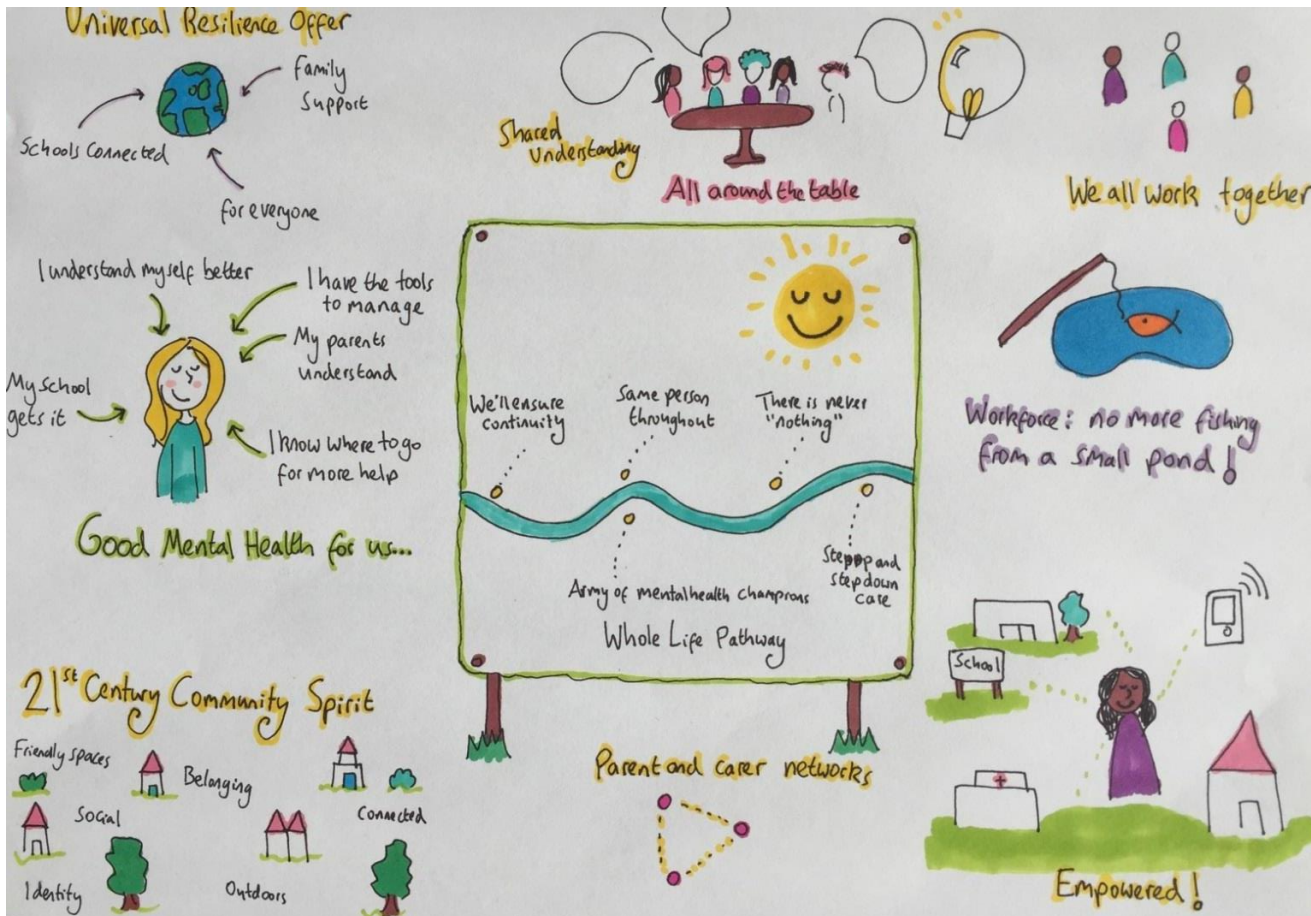 Universal Resilience Offer
Family
Support
Schools Connected
for everyone
Shared
Understanding
All around the table
We all work together
I understand myself better
I have the tools
to manage
My parents
understand
My school
gets it
I know where to go
for more help
Good Mental Health for us...
We'll ensure
continuity
Same person
throughout
There is never
"nothing"
Army of mental health champions
Step up and
step down
care
Whole Life Pathway
Workforce: no more fishing
from a small pond!
21st Century Community Spirit
Friendly spaces
Belonging
Social
Connected
Identity
Outdoors
Parent and carer networks
School
Empowered!